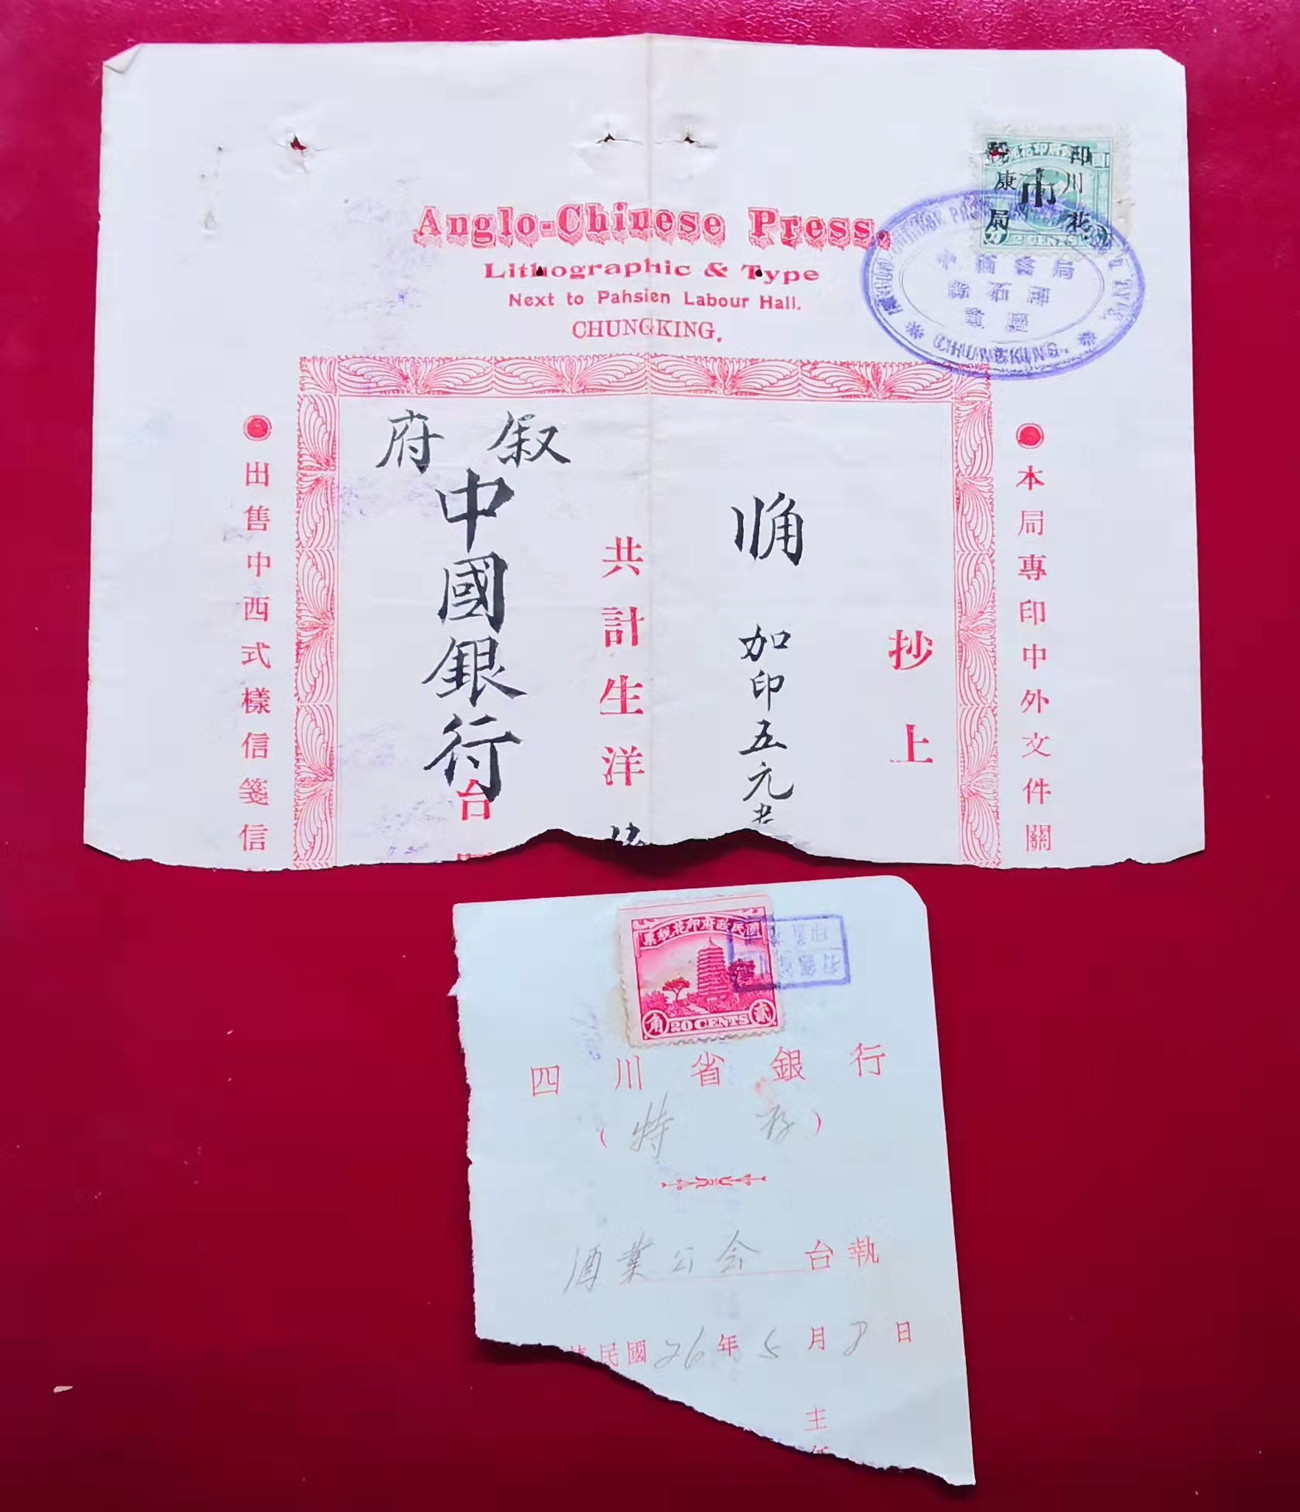 Anglo-Chinese Press.
Lithographic & Type
Next to Pahsien Labour Hall.
CHUNGKING.
2 CENTS
印川
花
康
局
市
中西書局
CHUNGKING.
本局專印中外文件關
抄上
加印五元
共計生洋
叙府
中國銀行
台
出售中西式樣信箋信
國民政府印花稅票
角 20 CENTS 貳
四川省銀行
(特存)
酒業公會台執
民國26年5月8日
主